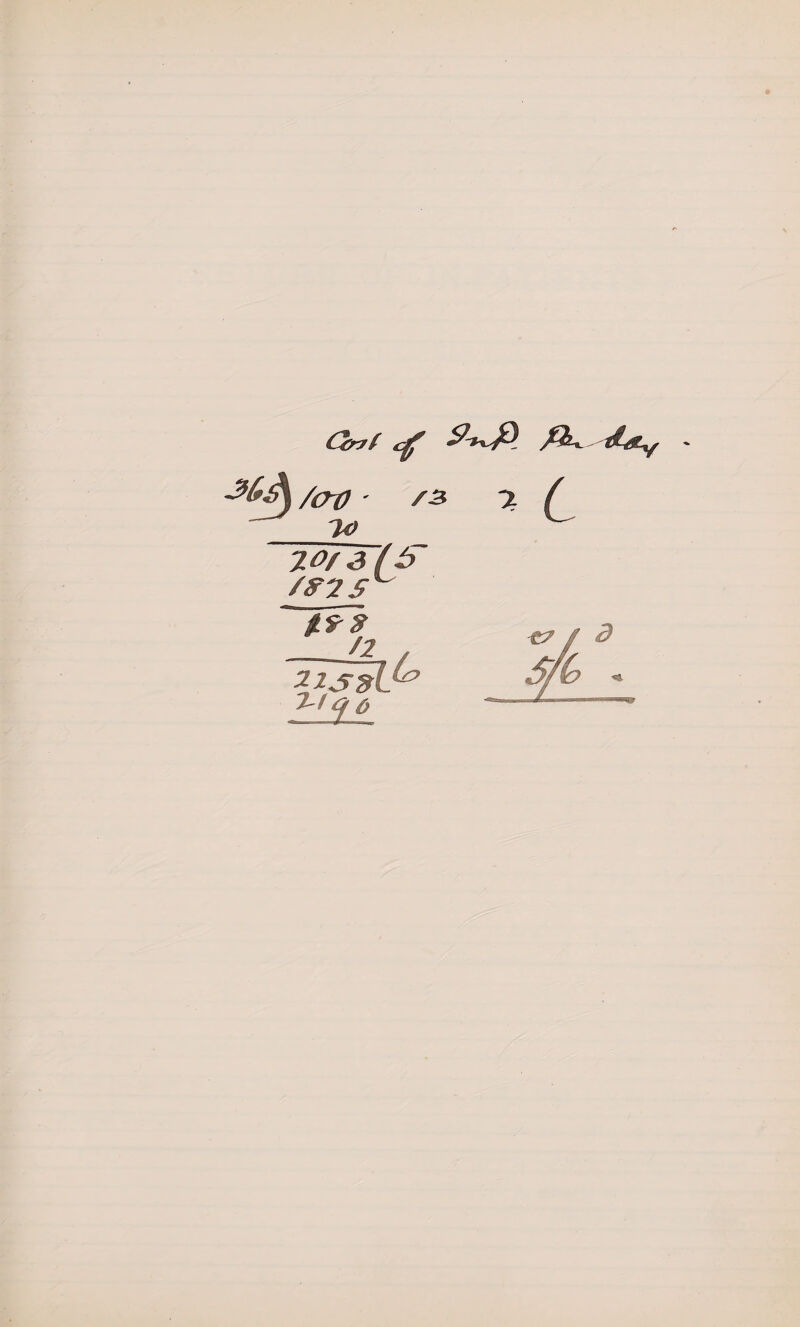 Cost of InP. Per day -
365) 100 - 13 2 (
20
2013 (5
1825
188
12
2258 (6
2190
s/d
5/6 -